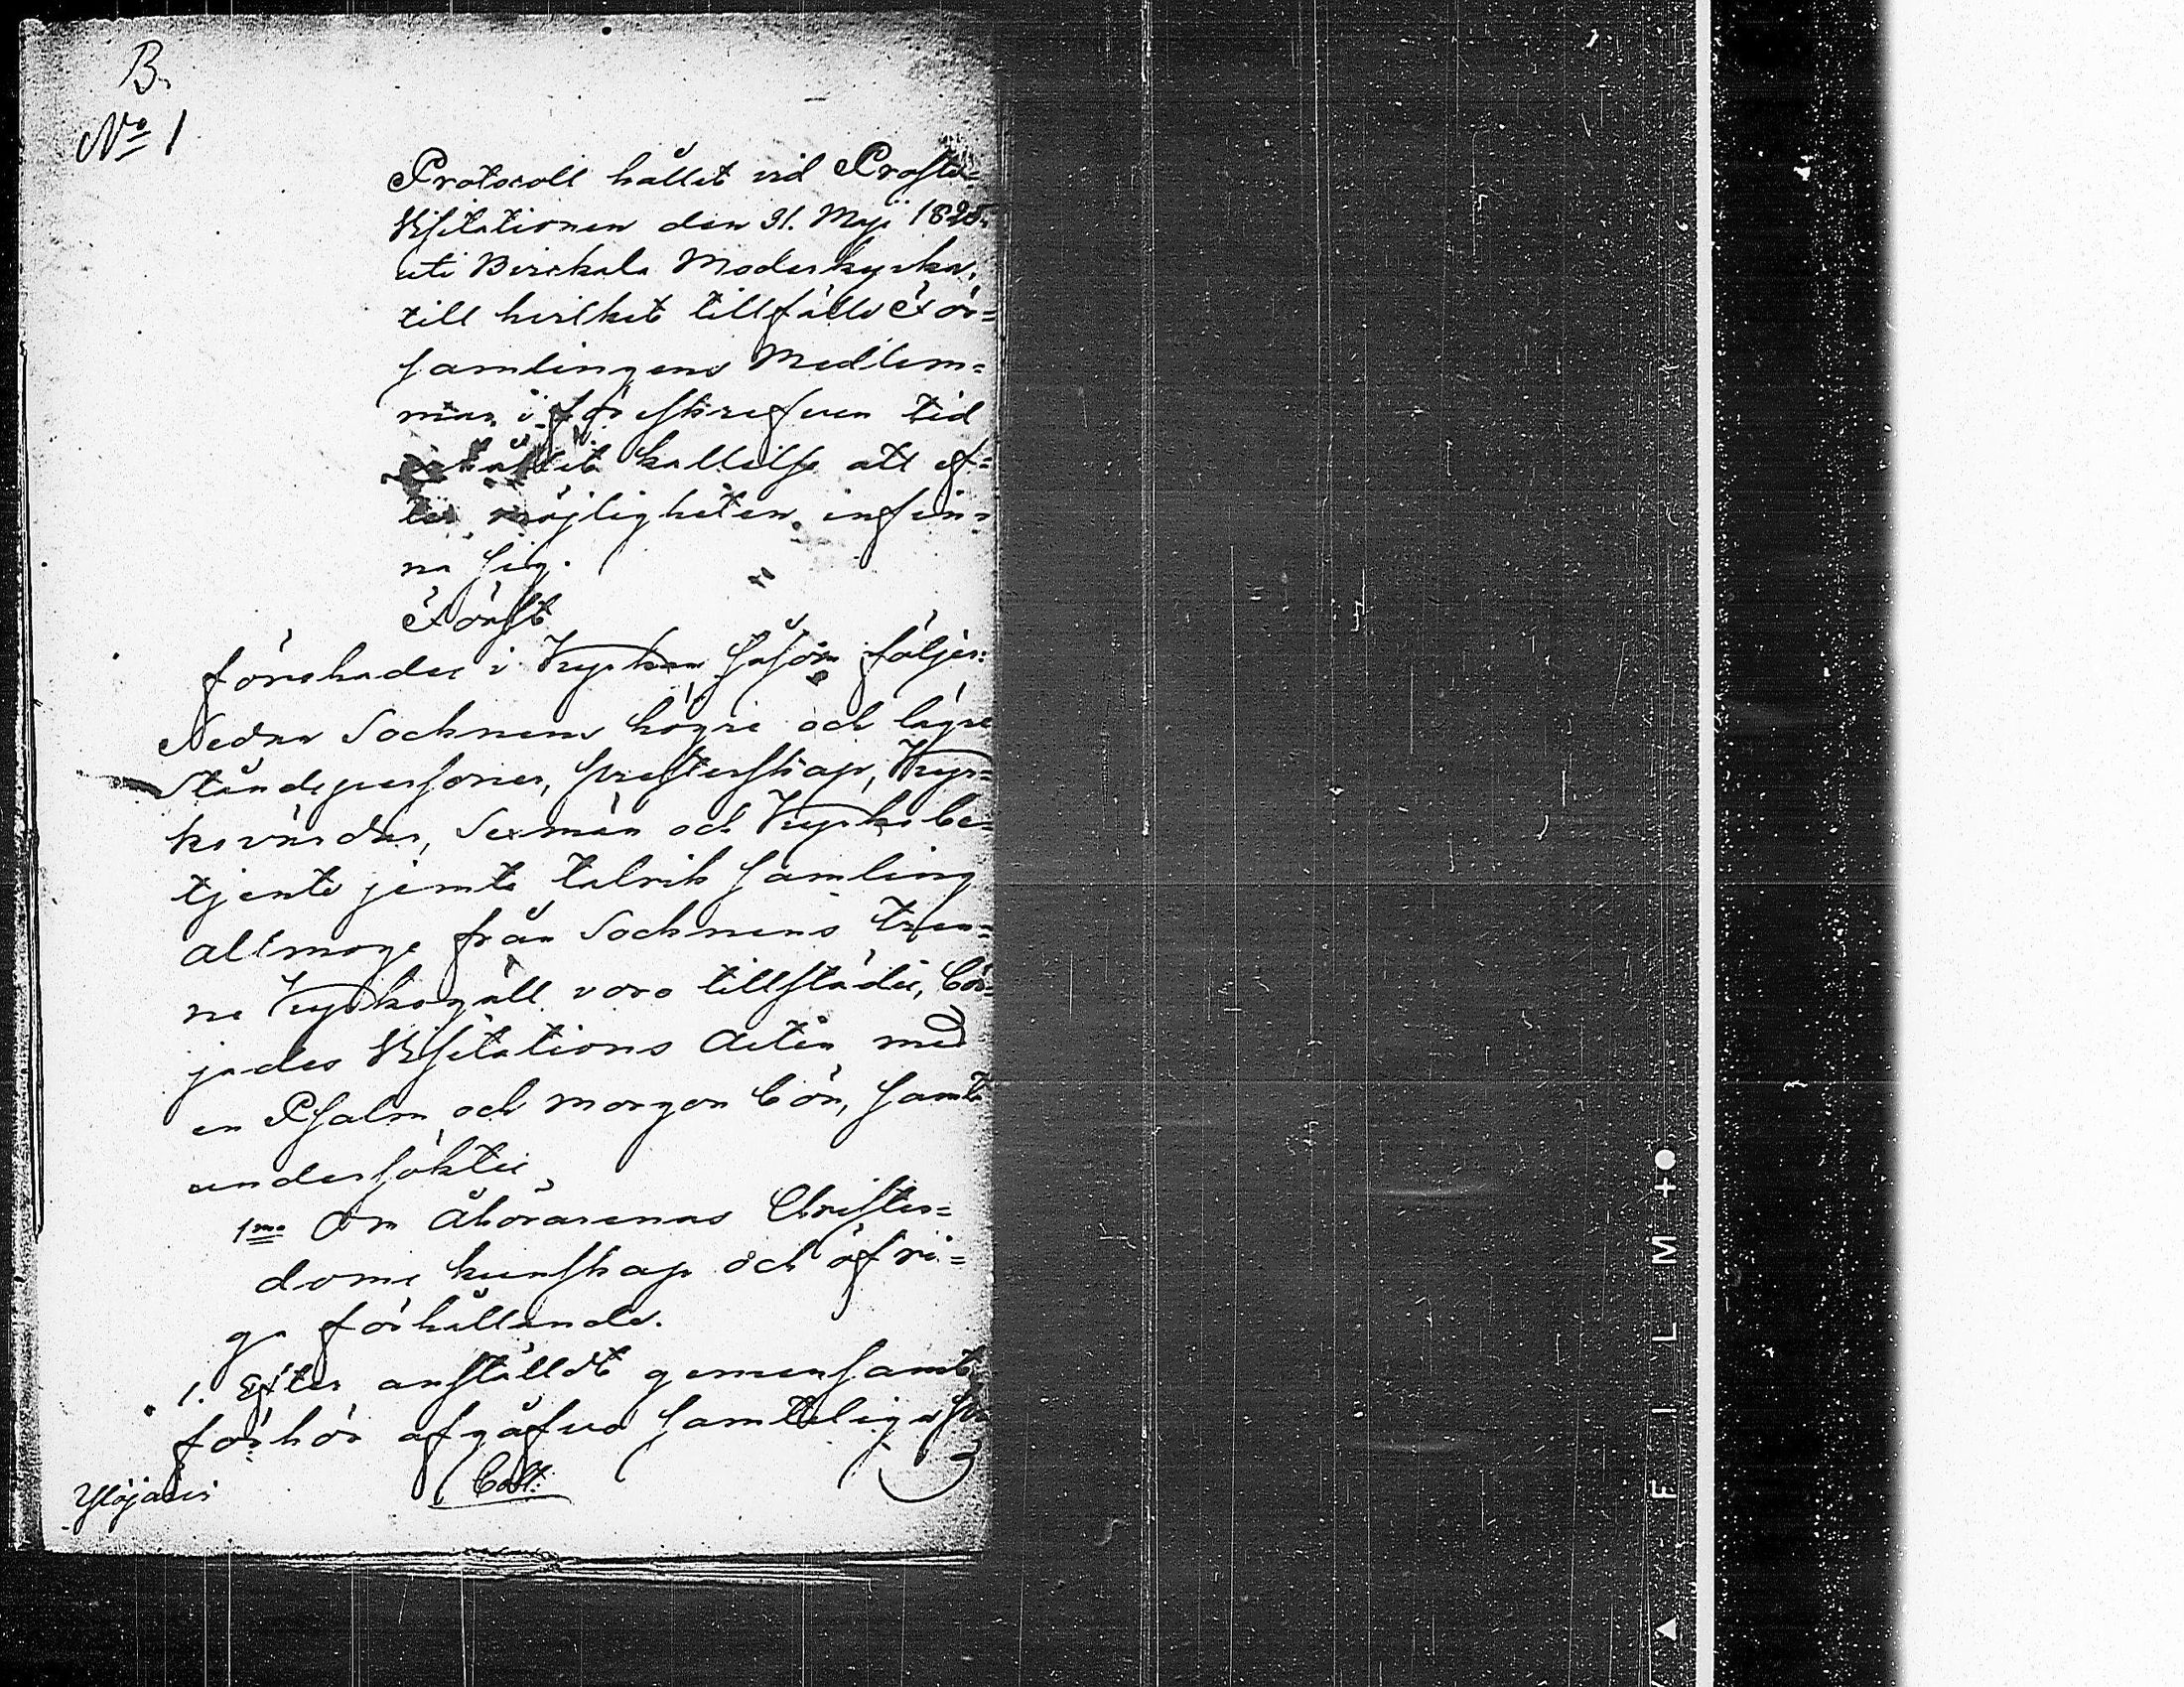 B.
No 1
Protocoll hållet vid Prosте-
Visitationen den 31. Maji 1825.
uti Birckala Moderkyrka,
till hvilket tillfälle För=
samlingens Medlem=
mar i föreskrefven tid
erhållit kallelse att ef=
ter möjligheten infin=
na sig.
Först
förrehades i Kyrkan såsom följer:
Sedan Socknens högre och lägre
Ståndspersoner, Presterskap, Kyr=
kovärdar, Sexmän och Kyrkobe=
tjente jemte talrik samling
allmoge från Socknens tren=
ne Kyrkogäll voro tillstädes, bör=
jades Visitations Acten med
en Psalm och morgon bön, samt
undersöktes
1mo Om Åhörarenas Christen=
doms kunskap och öfri=
ga förhållande.
1. Efter anställdt gemensamt
förhör afgåfvos samteliga
Ylöjärvi
Coll:
F I L M